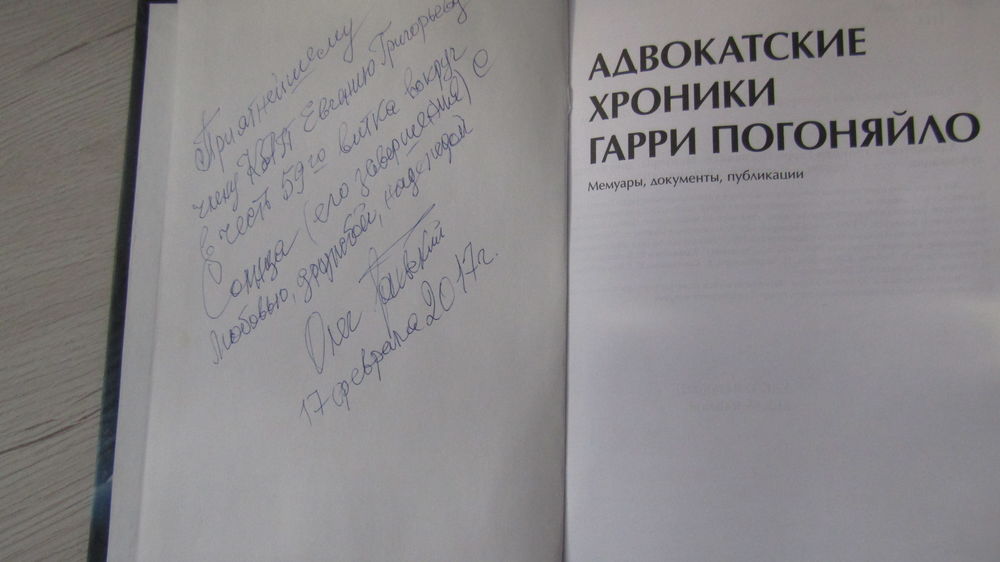 Приятнейшему
члену Евгению Григорьевичу
в честь 59го витка вокруг
Солнца (его завершения) с
любовью, дружбой, надеждой
Олег
17 февраля 2017г.
АДВОКАТСКИЕ
ХРОНИКИ
ГАРРИ ПОГОНЯЙЛО
Мемуары, документы, публикации